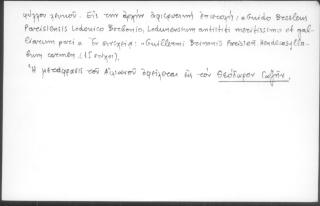 φύλλον λευκοῦ. Εἰς τὴν ἀρχὴν ἀφιερωτικὴ ἐπιστολή: «Guido Breslaus
Parisiensis Ludovico Borbonio, Laudunensium antistiti meritissimo et gal-
liarum pari». Ἐν συνεχείᾳ: «Guillermi Bormanis Parisien Hendecasylla-
bum carmen» (15 στίχοι).
Ἡ μετάφρασις τοῦ Αἰλιανοῦ ὀφείλεται εἰς τὸν Θεόδωρον Γαζῆν.